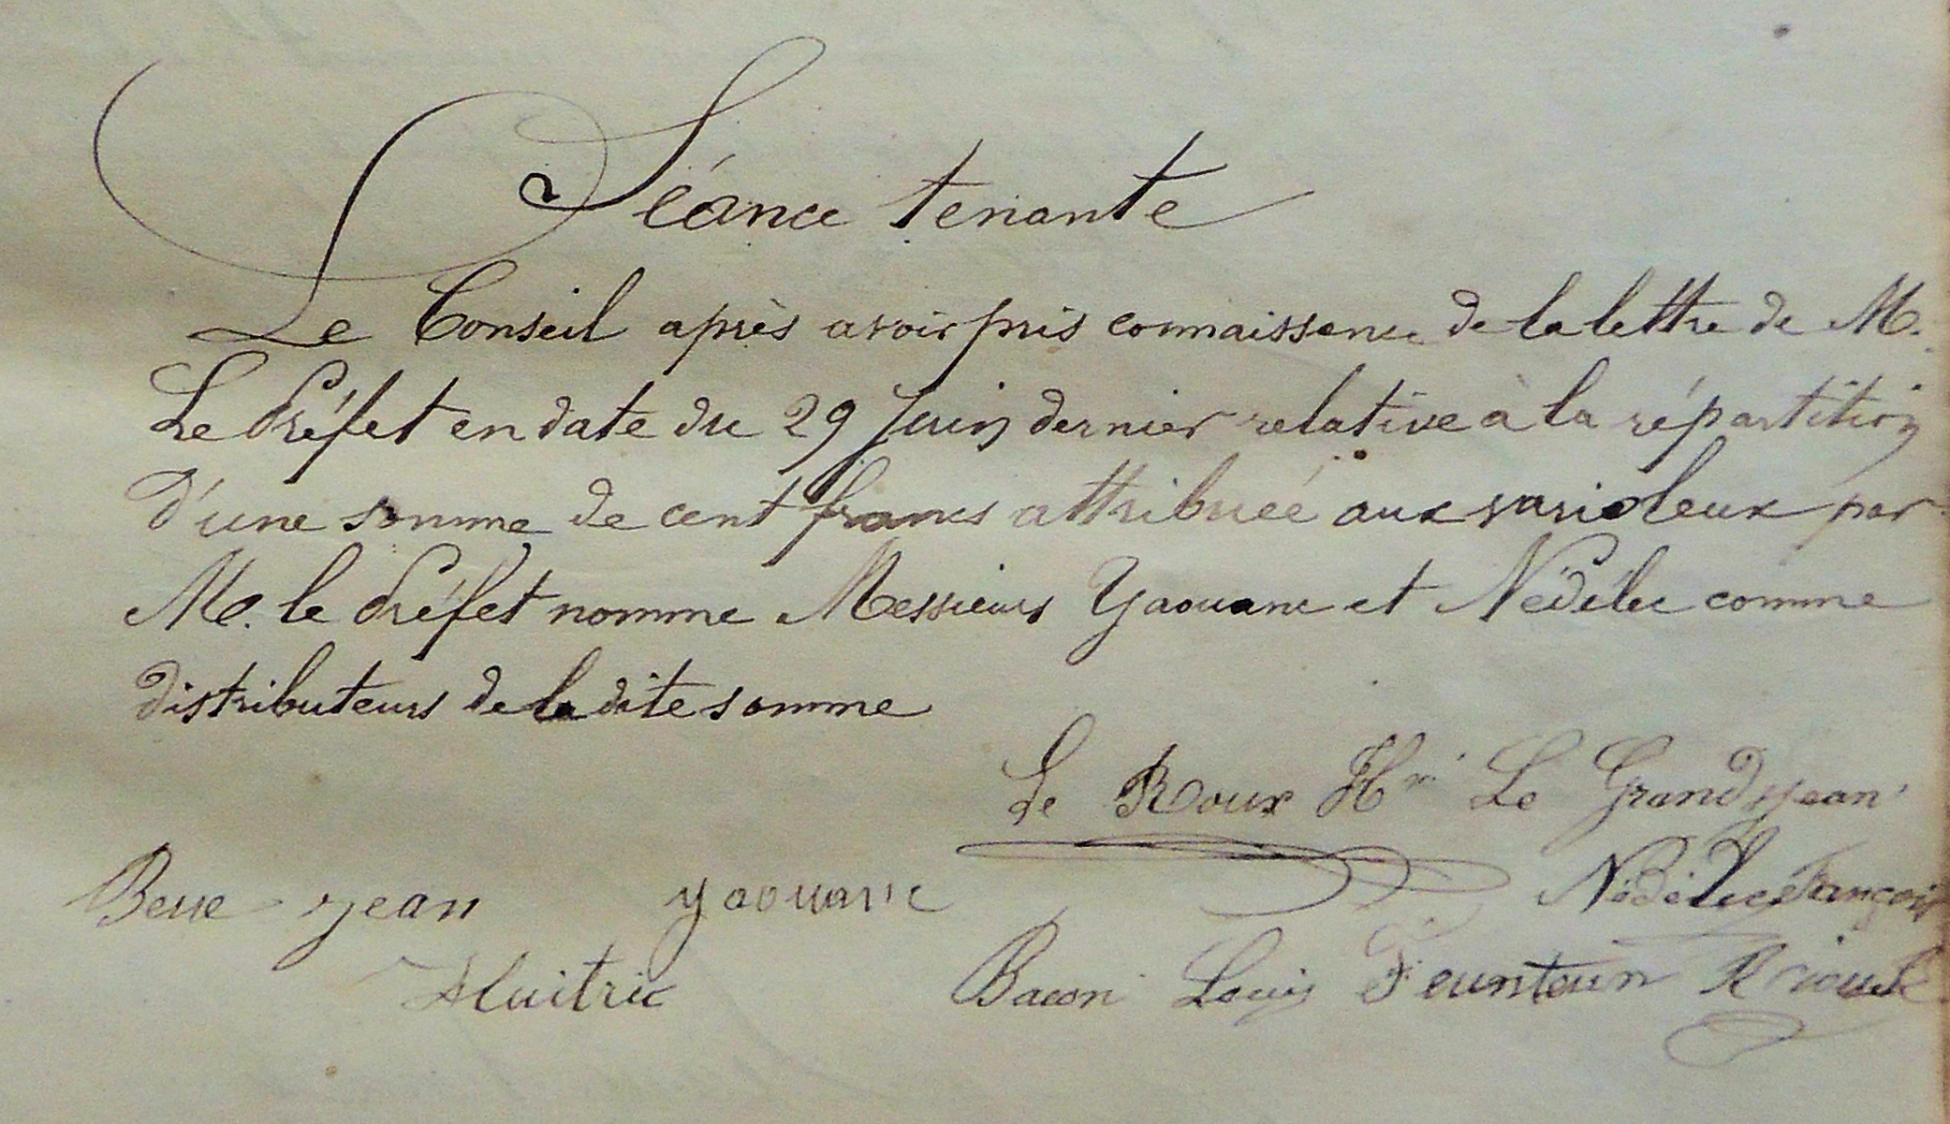 Séance tenante
Le Conseil après avoir pris connaissance de la lettre de M.
Le Préfet en date du 29 Juin dernier relative à la répartition
d'une somme de cent francs attribuée aux varioleux par
M. le Préfet nomme Messieurs Yaouanc et Nédélec comme
distributeurs de la dite somme
Le Roux Hri Le Grand jean
Nédélec françois
jean yaouanc
Huitric Bacon Louis Feunteun